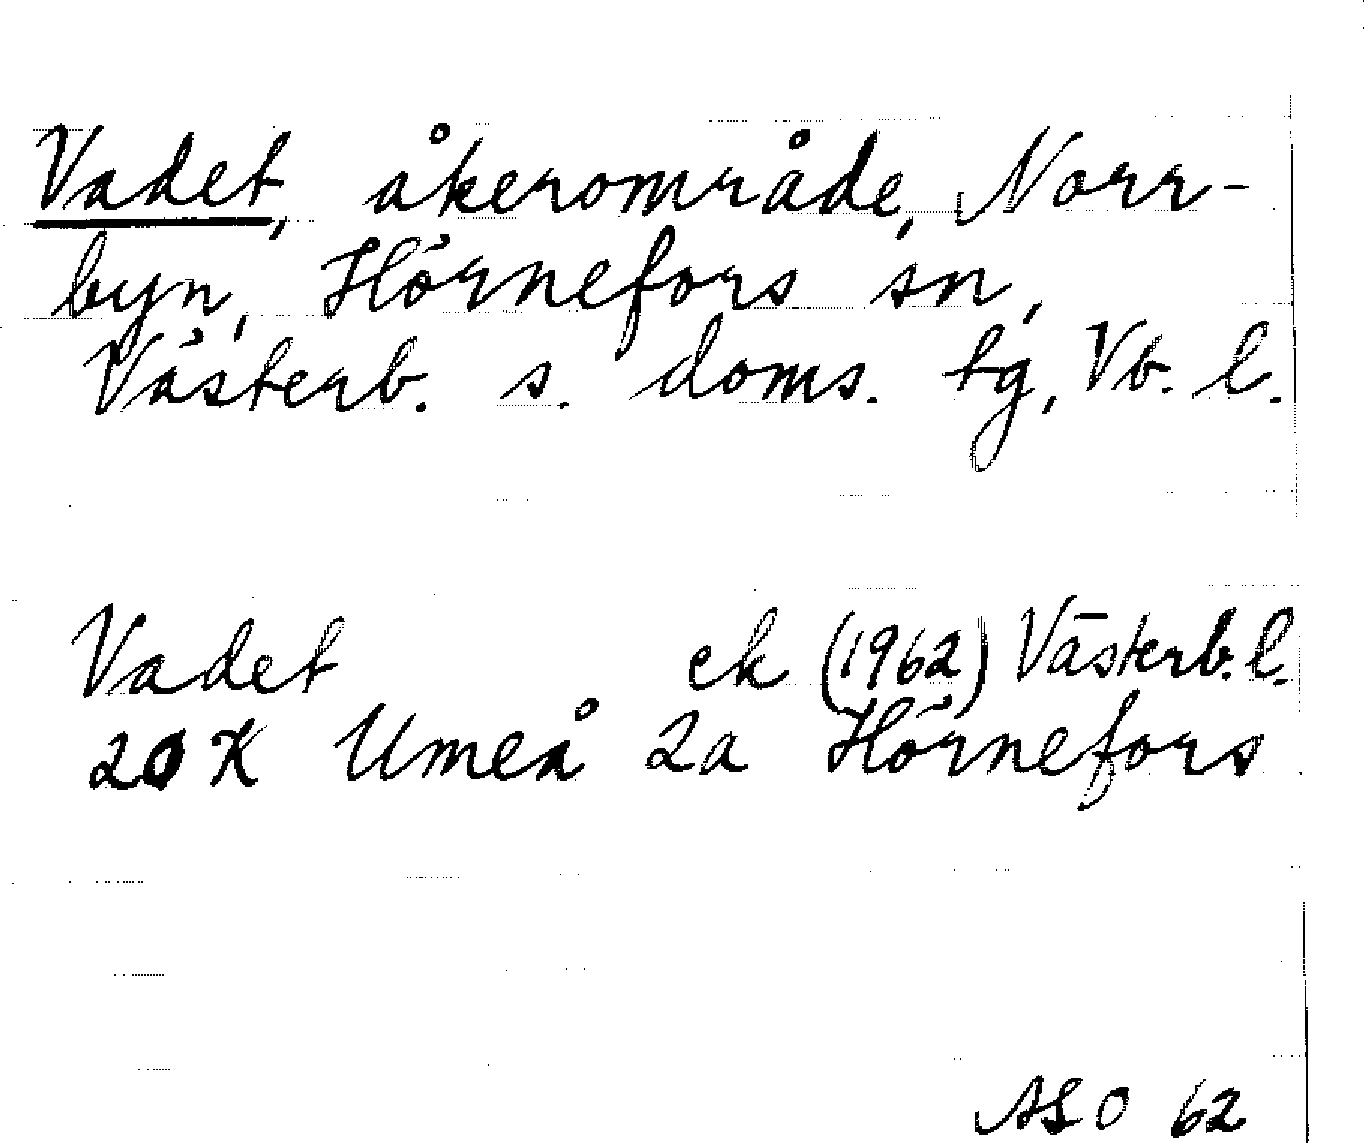 Vadet, åkerområde, Norr-
byn, Hörnefors sn,
Västerb. s. doms. tg, Vb. l.
Vadet ek (1962) Västerb. l.
20 K Umeå 2a Hörnefors
ASO 62